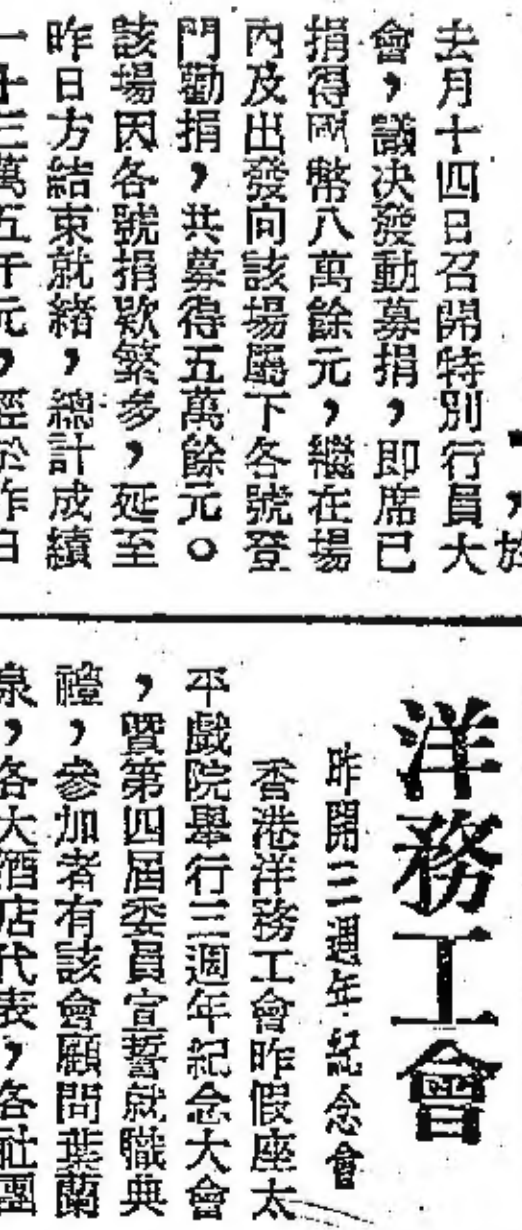 ，於
去月十四日召開特別行員大
會，議決發動募捐，即席已
捐得國幣八萬餘元，繼在場
內及出發向該場屬下各號登
門勸捐，共募得五萬餘元。
該場因各號捐欵繁多，延至
昨日方結束就緒，總計成績
一十三萬五千元，經於昨日
洋務工會
昨開三週年紀念會
香港洋務工會昨假座太
平戲院舉行三週年紀念大會
，暨第四屆委員宣誓就職典
禮，參加者有該會顧問葉蘭
泉，各大酒店代表，各社團